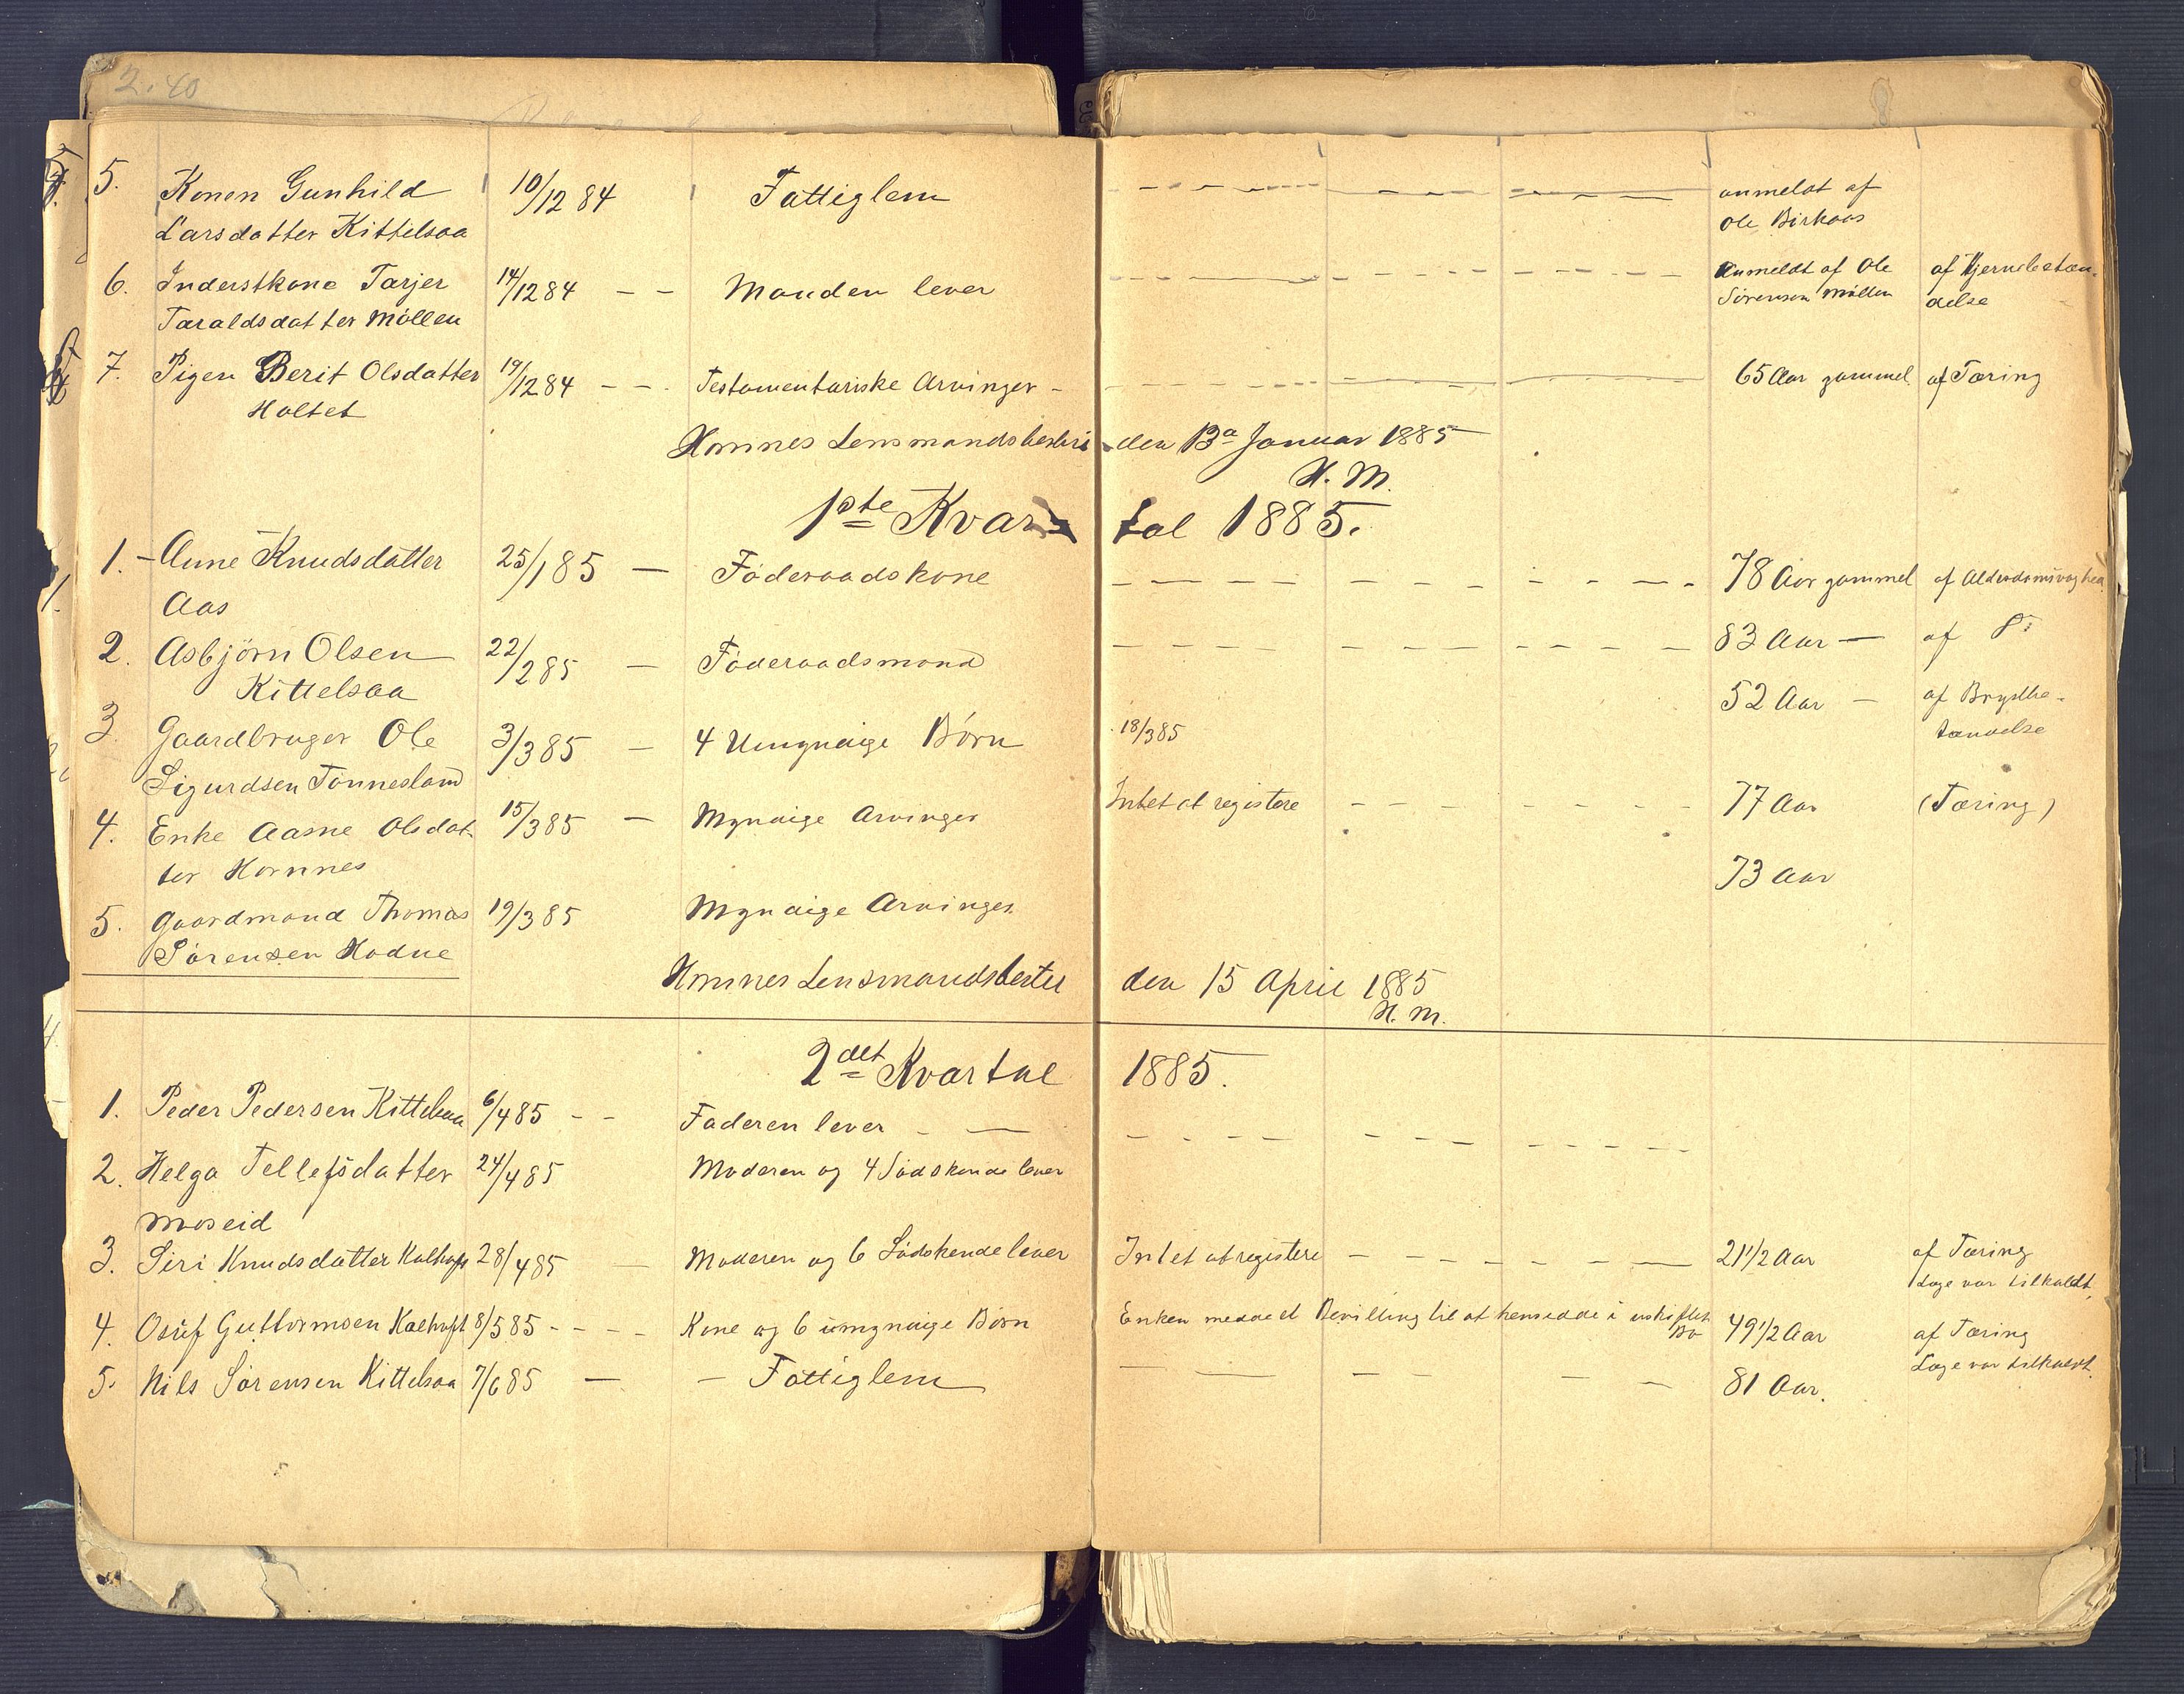 2.40
5. Konen Gunhild 10/12 84 Fattiglem anmeldt af
Larsdatter Kittilsaa Ole Birkaas
6. Inderstkone Tarjer 14/12 84 – – Manden lever Anmeldt af Ole af Hjernebetæn-
Taraldsdatter Möllen Sörensen Möllen delse
7. Pigen Berit Olsdatter 19/12 84 – – Testamentariske Arvinger – 65 Aar gammel af Tæring
Holtet
Hornnes Lensmandsbestri den 13de Januar 1885
H. M.
1ste Kvartal 1885.
1. – Anne Knudsdatter 25/1 85 – Föderaadskone 78 Aar gammel af Alderdomssvaghed
Aas
2. Asbjörn Olsen 22/2 85 – Föderaadsmand 83 Aar – af do
Kittelsaa
3. Gaardbruger Ole 3/3 85 – 4 Umyndige Börn 18/3 85 52 Aar – af Brystbe-
Sigurdsen Tönnesland tændelse
4. Enke Aasne Olsdat- 15/3 85 – Myndige Arvinger Intet at registere – – – 77 Aar (Tæring)
ter Hornnes
5. Gaardmand Thomas 19/3 85 Myndige Arvinger 73 Aar
Sörensen Hodne
Hornnes Lensmandsbestil den 15 April 1885
H. M.
2det Kvartal 1885.
1. Peder Pedersen Kittelsaa 6/4 85 – – Faderen lever – –
2. Helga Tellefsdatter 24/4 85 Moderen og 4 Södskende lever
Moseid
3. Siri Knudsdatter Kalhoft 28/4 85 – Moderen og 6 Södskende lever Intet at registere – – – 21 1/2 Aar af Tæring
Læge var tilkaldt.
4. Osuf Guttormsen Kalhoft 8/5 85 – – – – Kone og 6 umyndige Börn Enken meddelt Bevilling til at hensidde i uskiftet Bo 49 1/2 Aar af Tæring
Læge var tilkaldt.
5. Nils Sörensen Kittelsaa 7/6 85 – – Fattiglem 81 Aar.